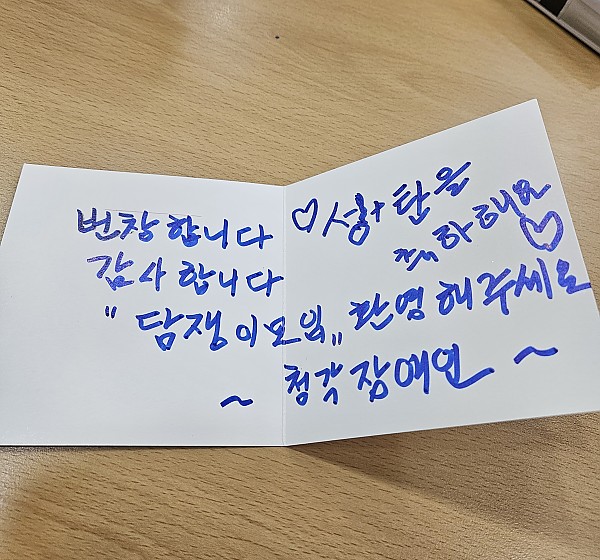 번창합니다
감사합니다
♡성+탄을
축하해요♡
"담쟁이모임" 환영해주세요
~ 청각장애인 ~